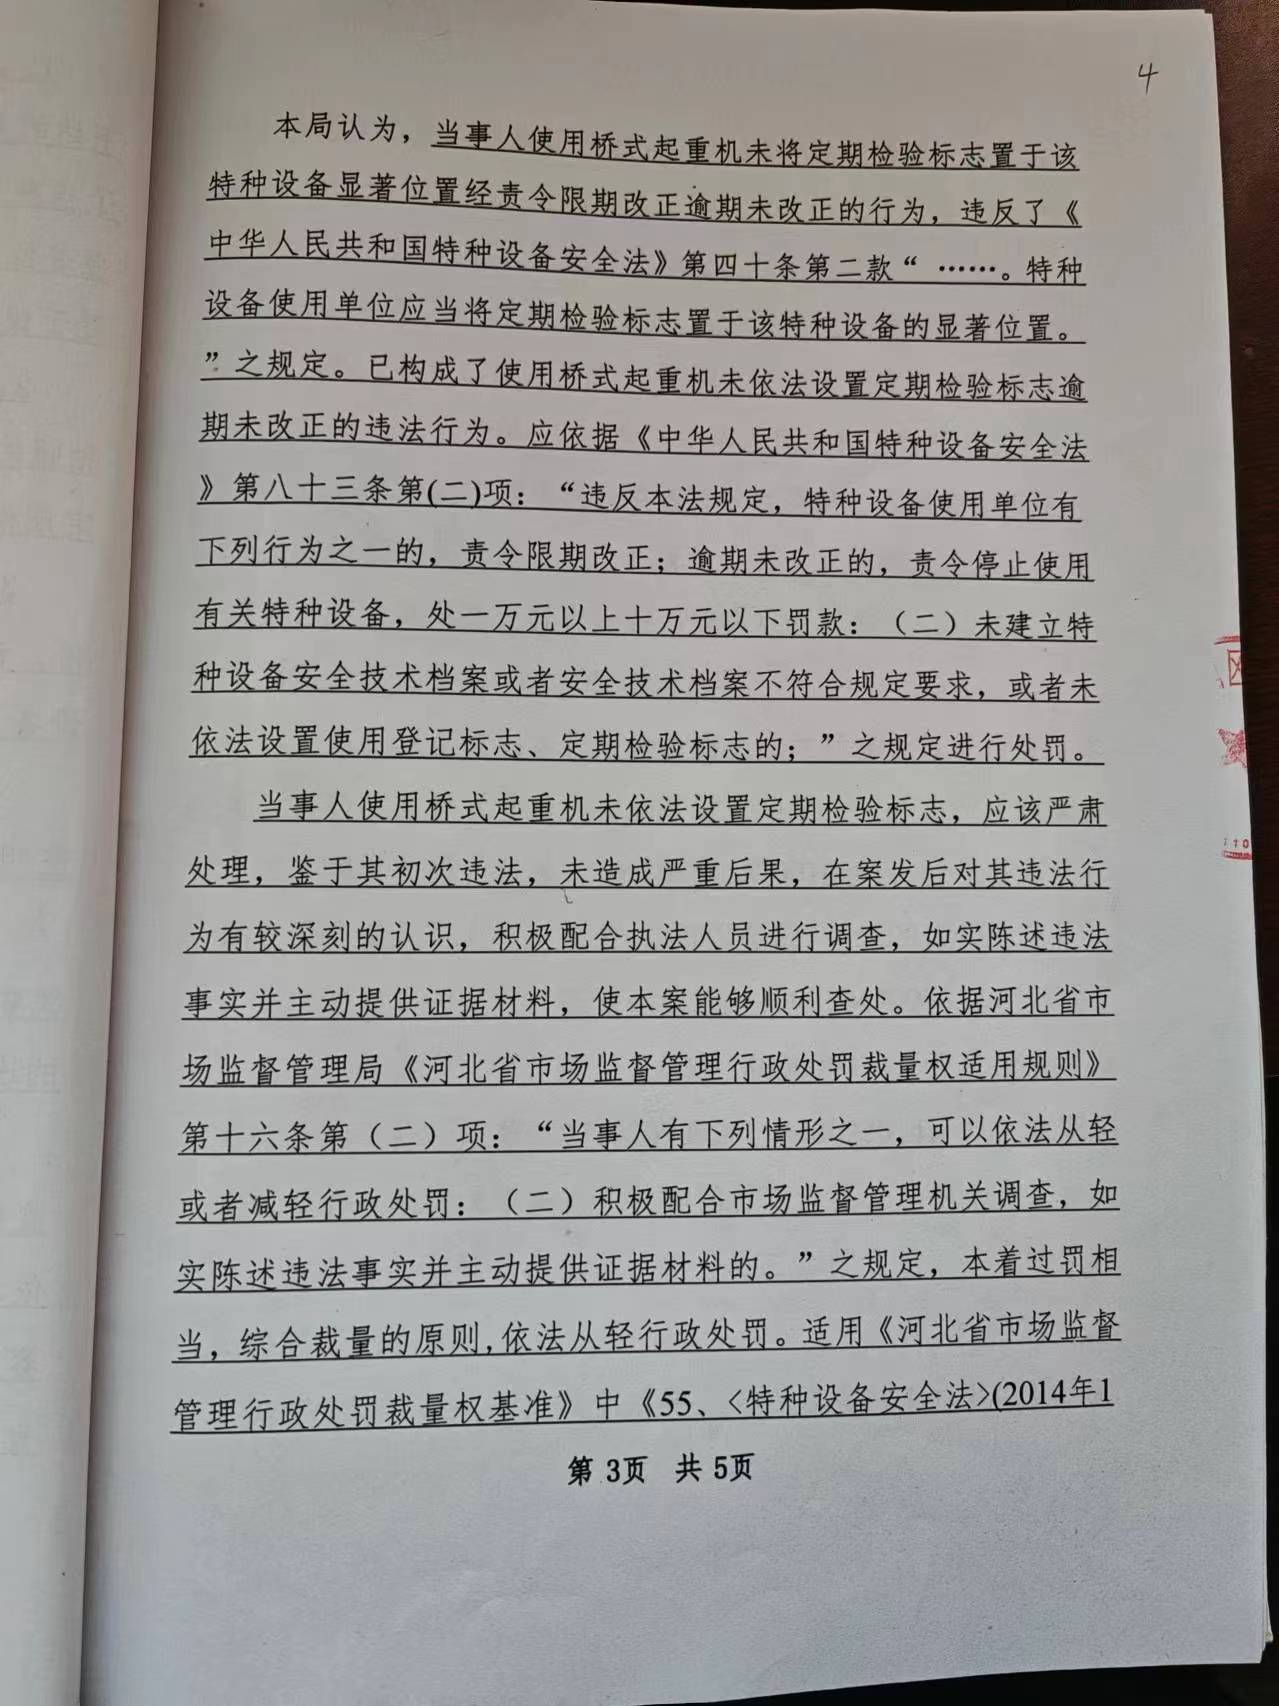 4
本局认为，当事人使用桥式起重机未将定期检验标志置于该
特种设备显著位置经责令限期改正逾期未改正的行为，违反了《
中华人民共和国特种设备安全法》第四十条第二款“ ……。特种
设备使用单位应当将定期检验标志置于该特种设备的显著位置。
”之规定。已构成了使用桥式起重机未依法设置定期检验标志逾
期未改正的违法行为。应依据《中华人民共和国特种设备安全法
》第八十三条第(二)项：“违反本法规定，特种设备使用单位有
下列行为之一的，责令限期改正；逾期未改正的，责令停止使用
有关特种设备，处一万元以上十万元以下罚款：（二）未建立特
种设备安全技术档案或者安全技术档案不符合规定要求，或者未
依法设置使用登记标志、定期检验标志的；”之规定进行处罚。
当事人使用桥式起重机未依法设置定期检验标志，应该严肃
处理，鉴于其初次违法，未造成严重后果，在案发后对其违法行
为有较深刻的认识，积极配合执法人员进行调查，如实陈述违法
事实并主动提供证据材料，使本案能够顺利查处。依据河北省市
场监督管理局《河北省市场监督管理行政处罚裁量权适用规则》
第十六条第（二）项：“当事人有下列情形之一，可以依法从轻
或者减轻行政处罚：（二）积极配合市场监督管理机关调查，如
实陈述违法事实并主动提供证据材料的。”之规定，本着过罚相
当，综合裁量的原则,依法从轻行政处罚。适用《河北省市场监督
管理行政处罚裁量权基准》中《55、<特种设备安全法>(2014年1
第 3页 共 5页